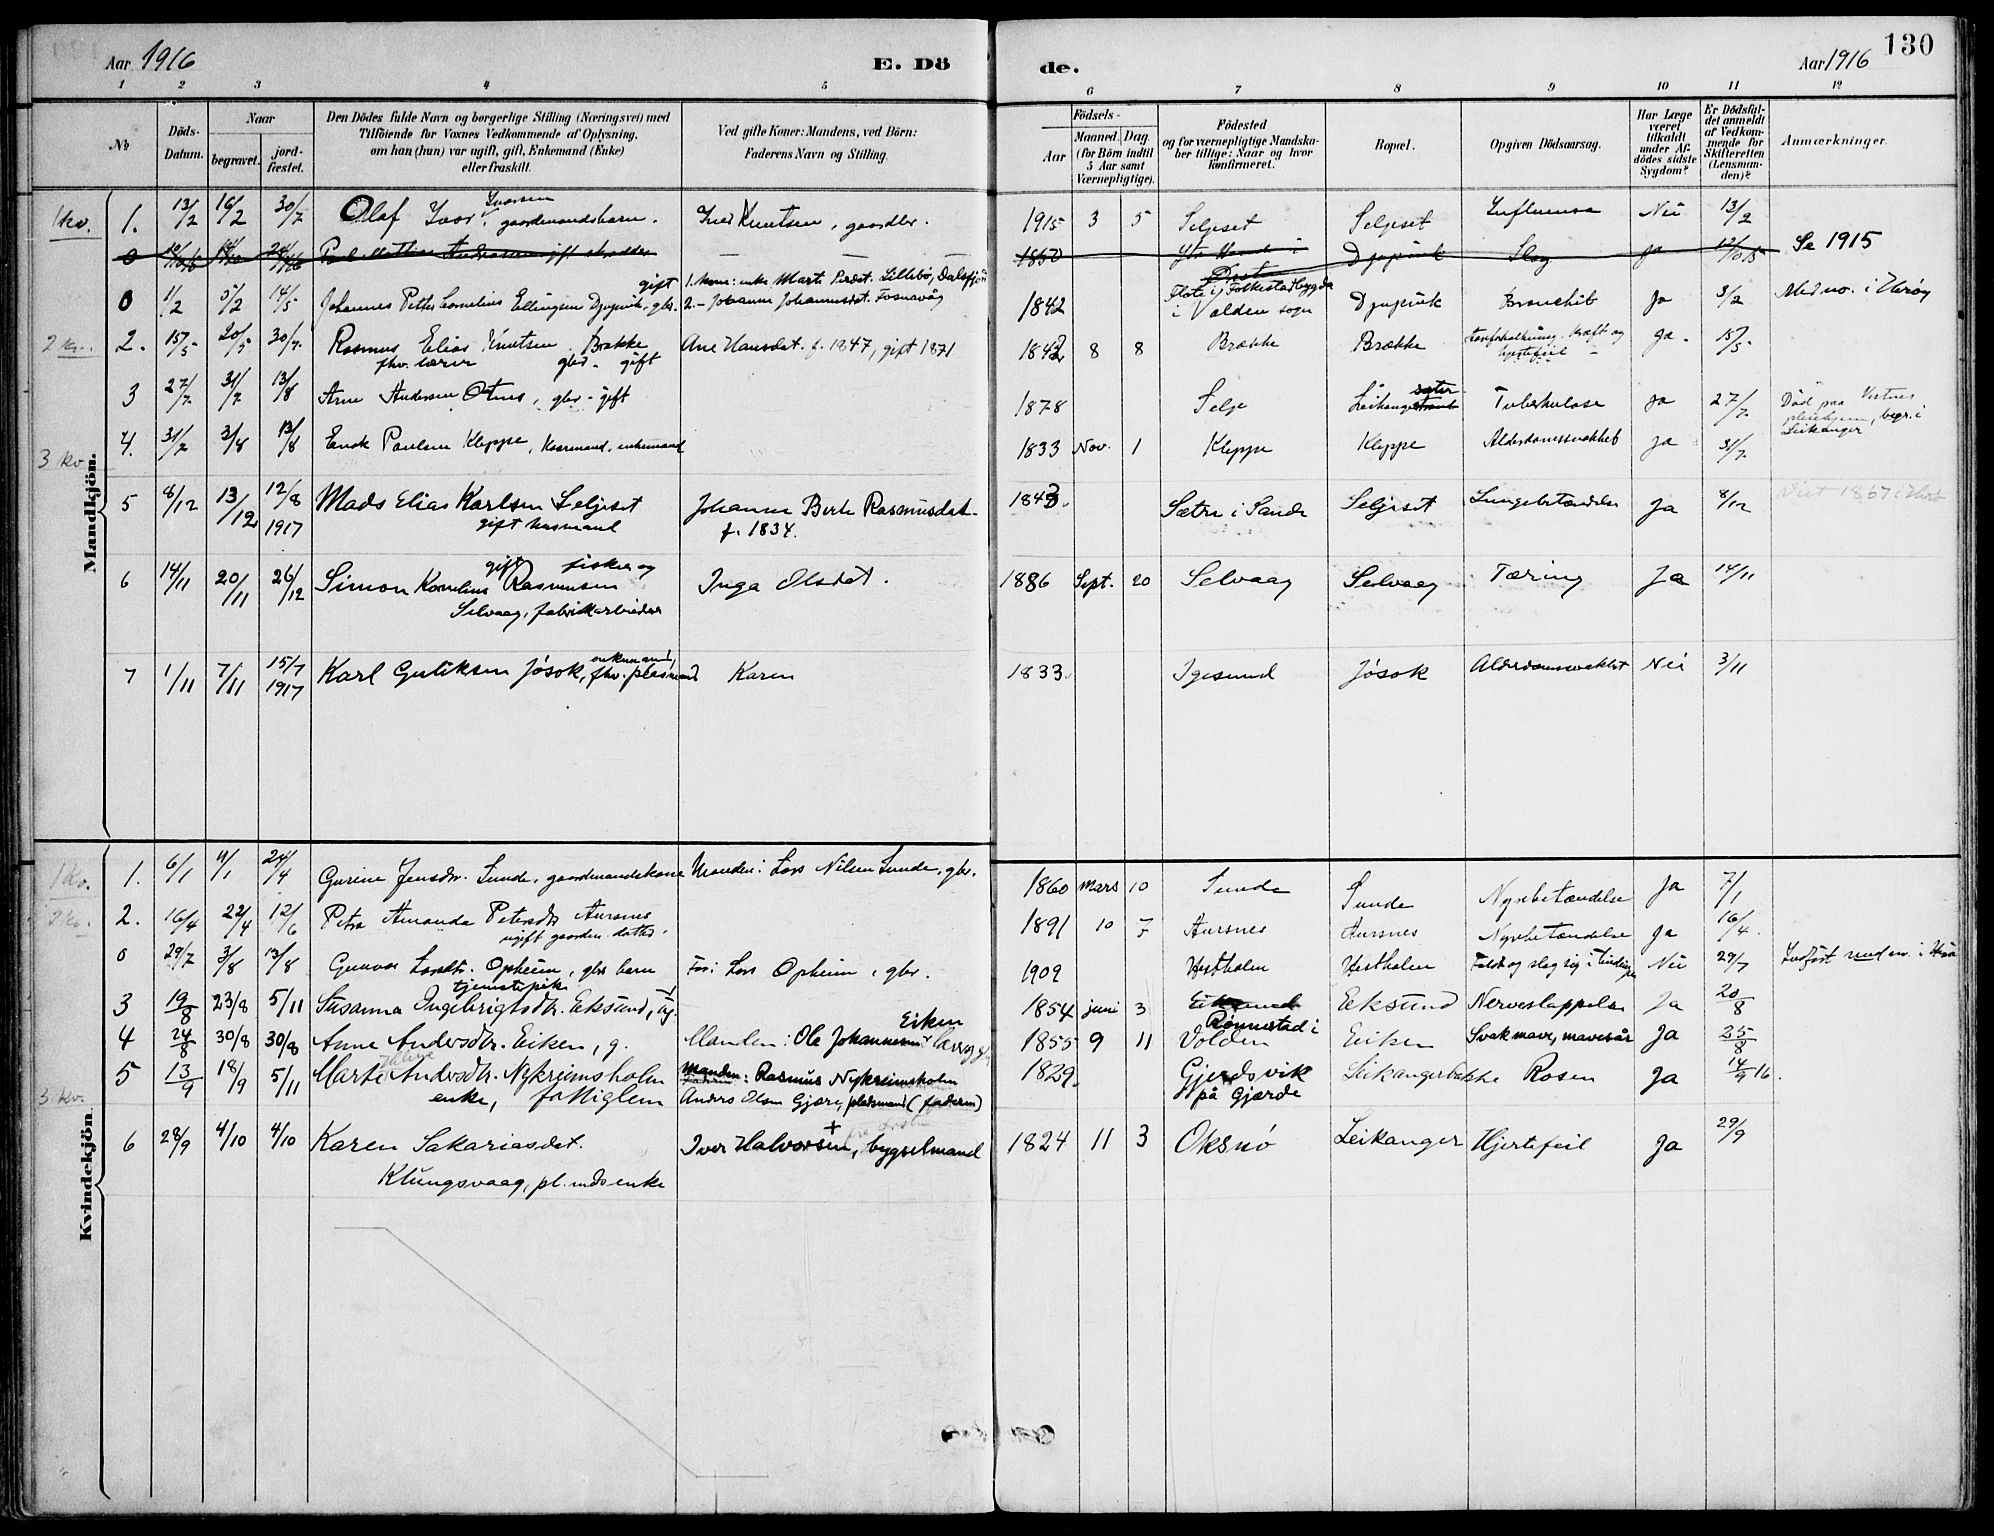 Aar 1916
E. Dö
de.
Aar 1916
130
1 2 3 4 5
6 7 8 9 10 11 12
№
Döds-Datum.
Naar
begravet.
jord-fæstet.
Den Dödes fulde Navn og borgerlige Stilling (Næringsvei) med
Tilföiende for Voxnes Vedkommende af Oplysning,
om han (hun) var ugift, gift, Enkemand (Enke)
eller fraskilt.
Ved gifte Koner: Mandens, ved Börn:
Faderens Navn og Stilling.
Födsels-
Aar
Maaned. Dag.
(for Börn indtil
5 Aar samt
Værnepligtige).
Födested
og for værnepligtige Mandska-
ber tillige: Naar og hvor
konfirmeret.
Bopæl.
Opgiven Dödsaarsag.
Har Læge
været
tilkaldt
under Af-
dödes sidste
Sygdom?
Er Dödsfal-
det anmeldt
af Vedkom-
mende for
Skifteretten
(Lensman-
den)?
Anmærkninger.
Mandkjön.
1 kv.
1. 13/2 16/2 30/7 Olaf Ivar Ivarsen gaardmandsbarn. Knutsen, gaardbr. 1915 3 5 Seljeset Seljeset Influensa Nei 13/2
0 Paul Mathias Andreassen gift skrædder 1850 Djupvik Slag ja Se 1915
0 1/2 5/2 14/5 Johannes Petter Cornelius Ellingsen Djupvik, gbr. gift
1. kone: enke Marte Perdst. Lillebø, Dalsfjord
2. – Johanne Johannesdat. Fosnavåg
1842 Flote i Folkestadbygda i Volden sogn Djupvik Bronchit Ja 3/2 Med no. i Herøy
2 kv.
2. 15/5 20/5 30/7 Rasmus Elias Knutsen Brække
fhv. lærer gbr. gift
Ane Hansdat. f. 1847, gift 1871
1842 8 8 Brække Brække kræft og hjertefeil ja. 15/5
3 27/7 31/7 13/8 Arne Andersen Otnes, gbr. gift 1878 Selje Tuberkulose ja 27/7 Død paa begr. i Leikanger
3 kv.
4. 31/7 3/8 13/8 Enok Paulsen Kleppe, Kaarmand, enkemand 1833 Nov. 1 Kleppe Kleppe Alderdomssvakhet ja 31/7
5 8/12 13/12 12/8 1917 Mads Elias Karlsen Seljeset
gift husmand
Johanne Berte Rasmusdat.
f. 1834.
1843. Sætre i Sande Seljeset Lungebetændelse Ja 8/12
6 14/11 20/11 26/12 Simon Kornelius Rasmussen gift fisker og
Selvaag, fabrikkarbeider
Inga Olsdat.
1886 Sept. 20 Selvaag Selvaag Tæring Ja 14/11
7 1/11 7/11 15/7 1917 Karl Gutiksen Jøsok, enkemand, fhv. plasmand Karen 1833. Igesund Jøsok Alderdomssvakhet Nei 3/11
Kvindekjön
1 kv.
1. 6/1 11/1 24/4 Gurine Jensdtr. Sunde, gaardmandskone Manden: Lars Nilsen Sunde, gbr. 1860 Mars 10 Sunde Sunde Nyrebetændelse Ja 7/1
2 kv.
2. 16/4 22/4 12/6 Petra Amanda Petersdtr Aursnes
ugift gaardm. datter.
1891 10 7 Aursnes Aursnes Nyrebetændelse Ja 16/4.
0 29/7 3/8 13/8 Gunvor Larsdtr. Opheim, gbr barn Far: Lars Opheim, gbr. 1909 Hestholen Hestholen Faldt og slog sig i Nei 29/7
3 19/8 23/8 5/11 Susanna Ingebrigtsdtr. Eiksund, ug. tjenestepike 1854 juni 3 Eiksund Eeksund Nerveslappelse Ja 20/8
4 24/8 30/8 30/8 Anne Andersdtr. Eiken, g. Manden: Ole Johannesen Eiken 1855 9 11 Rønnestad i Volden Eiken Svak mave, mavesår Ja 25/8
3 kv.
5 13/9 18/9 5/11 Marte Andersdtr. Nykreimsholm
enke, fattiglem
Manden: Rasmus Nykreimsholm
Anders Olsen Gjære, pladsmand (faderen)
1829. Gjerdsvik
på Gjærde
Leikangerbakke Rosen Ja 14/9 16.
6 28/9 4/10 4/10 Karen Sakariasdat.
Klungsvaag, pl.mds enke
Iver Halvorsen +, bygselmand
1824 11 3 Oksnø Leikanger Hjertefeil Ja 29/9